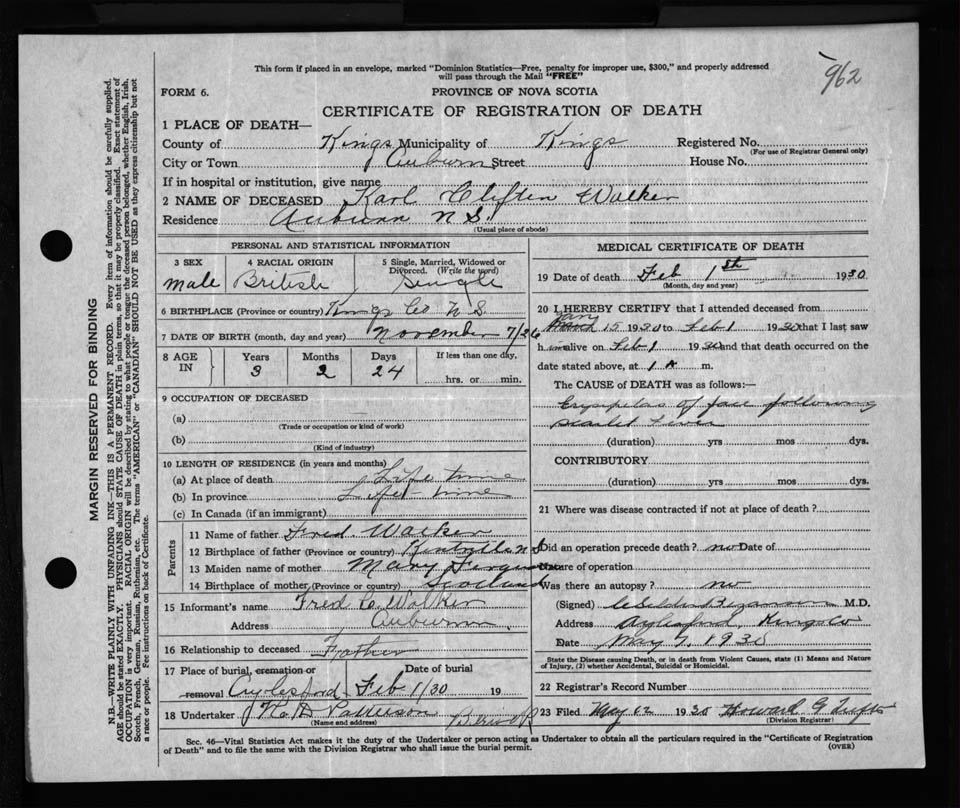 This form if placed in an envelope, marked "Dominion Statistics—Free, penalty for improper use, $300," and properly addressed
will pass through the Mail "FREE"
962
FORM 6.
PROVINCE OF NOVA SCOTIA
CERTIFICATE OF REGISTRATION OF DEATH
1 PLACE OF DEATH—
County of Kings Municipality of Kings Registered No.
(For use of Registrar General only)
City or Town Auburn Street House No.
If in hospital or institution, give name
2 NAME OF DECEASED Karl Clifton Walker
Residence Auburn N S.
(Usual place of abode)
PERSONAL AND STATISTICAL INFORMATION
3 SEX 4 RACIAL ORIGIN 5 Single, Married, Widowed or
Divorced. (Write the word)
male British Single
6 BIRTHPLACE (Province or country) Kings Co N S.
7 DATE OF BIRTH (month, day and year) November 7/26
8 AGE IN Years Months Days If less than one day,
3 2 24 hrs. or min.
9 OCCUPATION OF DECEASED
(a)
(Trade or occupation or kind of work)
(b)
(Kind of industry)
10 LENGTH OF RESIDENCE (in years and months)
(a) At place of death Life time
(b) In province Life-time
(c) In Canada (if an immigrant)
Parents
11 Name of father Fred. Walker
12 Birthplace of father (Province or country) Kentville N S
13 Maiden name of mother Mary
14 Birthplace of mother (Province or country) Scotland
15 Informant's name Fred C Walker
Address Auburn
16 Relationship to deceased Father
17 Place of burial, cremation or removal Date of burial
Aylesford Feb 1/30 19
18 Undertaker Patterson Berwick
(Name and address)
MEDICAL CERTIFICATE OF DEATH
19 Date of death Feb 1st 1930
(Month, day and year)
20 I HEREBY CERTIFY that I attended deceased from
Jany 15 1930 to Feb 1 1930 that I last saw
him alive on Feb 1 1930 and that death occurred on the
date stated above, at 1 A m.
The CAUSE OF DEATH was as follows:—
Erysipelas of face following
Scarlet Fever
(duration) yrs mos dys.
CONTRIBUTORY
(duration) yrs mos dys.
21 Where was disease contracted if not at place of death?
Did an operation precede death? no Date of
Nature of operation
Was there an autopsy? no
(Signed) M.D.
Address Aylesford, Kings Co
Date May 7, 1930
State the Disease causing Death, or in death from Violent Causes, state (1) Means and Nature
of Injury, (2) whether Accidental, Suicidal or Homicidal.
22 Registrar's Record Number
23 Filed May 1930 Howard G
(Division Registrar)
Sec. 46—Vital Statistics Act makes it the duty of the Undertaker or person acting as Undertaker to obtain all the particulars required in the "Certificate of Registration
of Death" and to file the same with the Division Registrar who shall issue the burial permit.
(OVER)
MARGIN RESERVED FOR BINDING
N.B.—WRITE PLAINLY WITH UNFADING INK—THIS IS A PERMANENT RECORD. Every item of information should be carefully supplied.
AGE should be stated EXACTLY. PHYSICIANS should STATE CAUSE OF DEATH in plain terms, so that it may be properly classified. Exact statement of
OCCUPATION is very important. RACIAL ORIGIN will be described by stating to what people or tongue the deceased person belonged, whether English, Irish,
Scotch, French, German, Russian, Ruthenian, etc. The terms "AMERICAN" or "CANADIAN" SHOULD NOT BE USED as they express citizenship but not
a race or people. See instructions on back of Certificate.